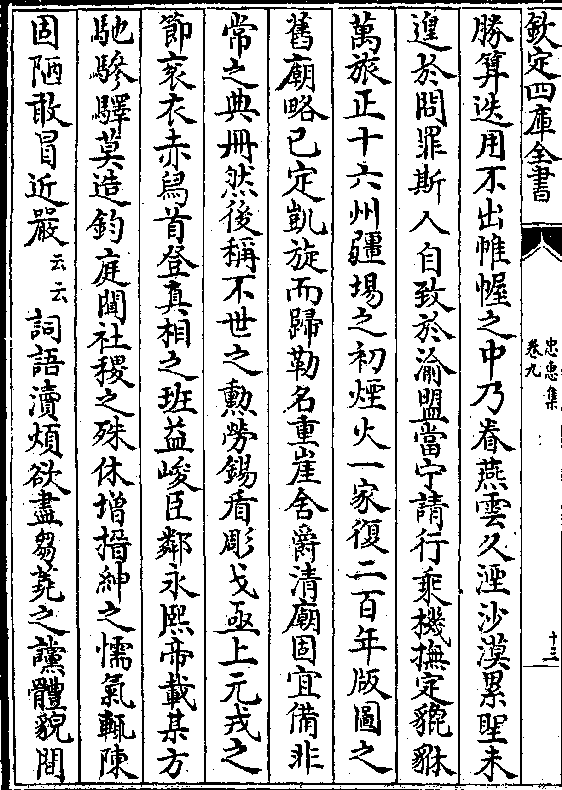 欽定四庫全書
忠惠集
卷九
十三
勝算迭用不出帷幄之中乃眷燕雲久湮沙漠累聖未
遑於問罪斯人自致於渝盟當宁請行乘機撫定貔貅
萬旅正十六州疆埸之初煙火一家復二百年版圖之
舊廟略已定凱旋而歸勒名重崖舍爵清廟固宜備非
常之典冊然後稱不世之勲勞錫盾彫戈亟上元戎之
節衮衣赤舄首登真相之班益峻臣鄰永熈帝載某方
馳驂驛莫造鈞庭聞社稷之殊休增搢紳之懦氣輒陳
固陋敢冒近嚴云云詞語瀆煩欲盡芻蕘之讜體貌閒